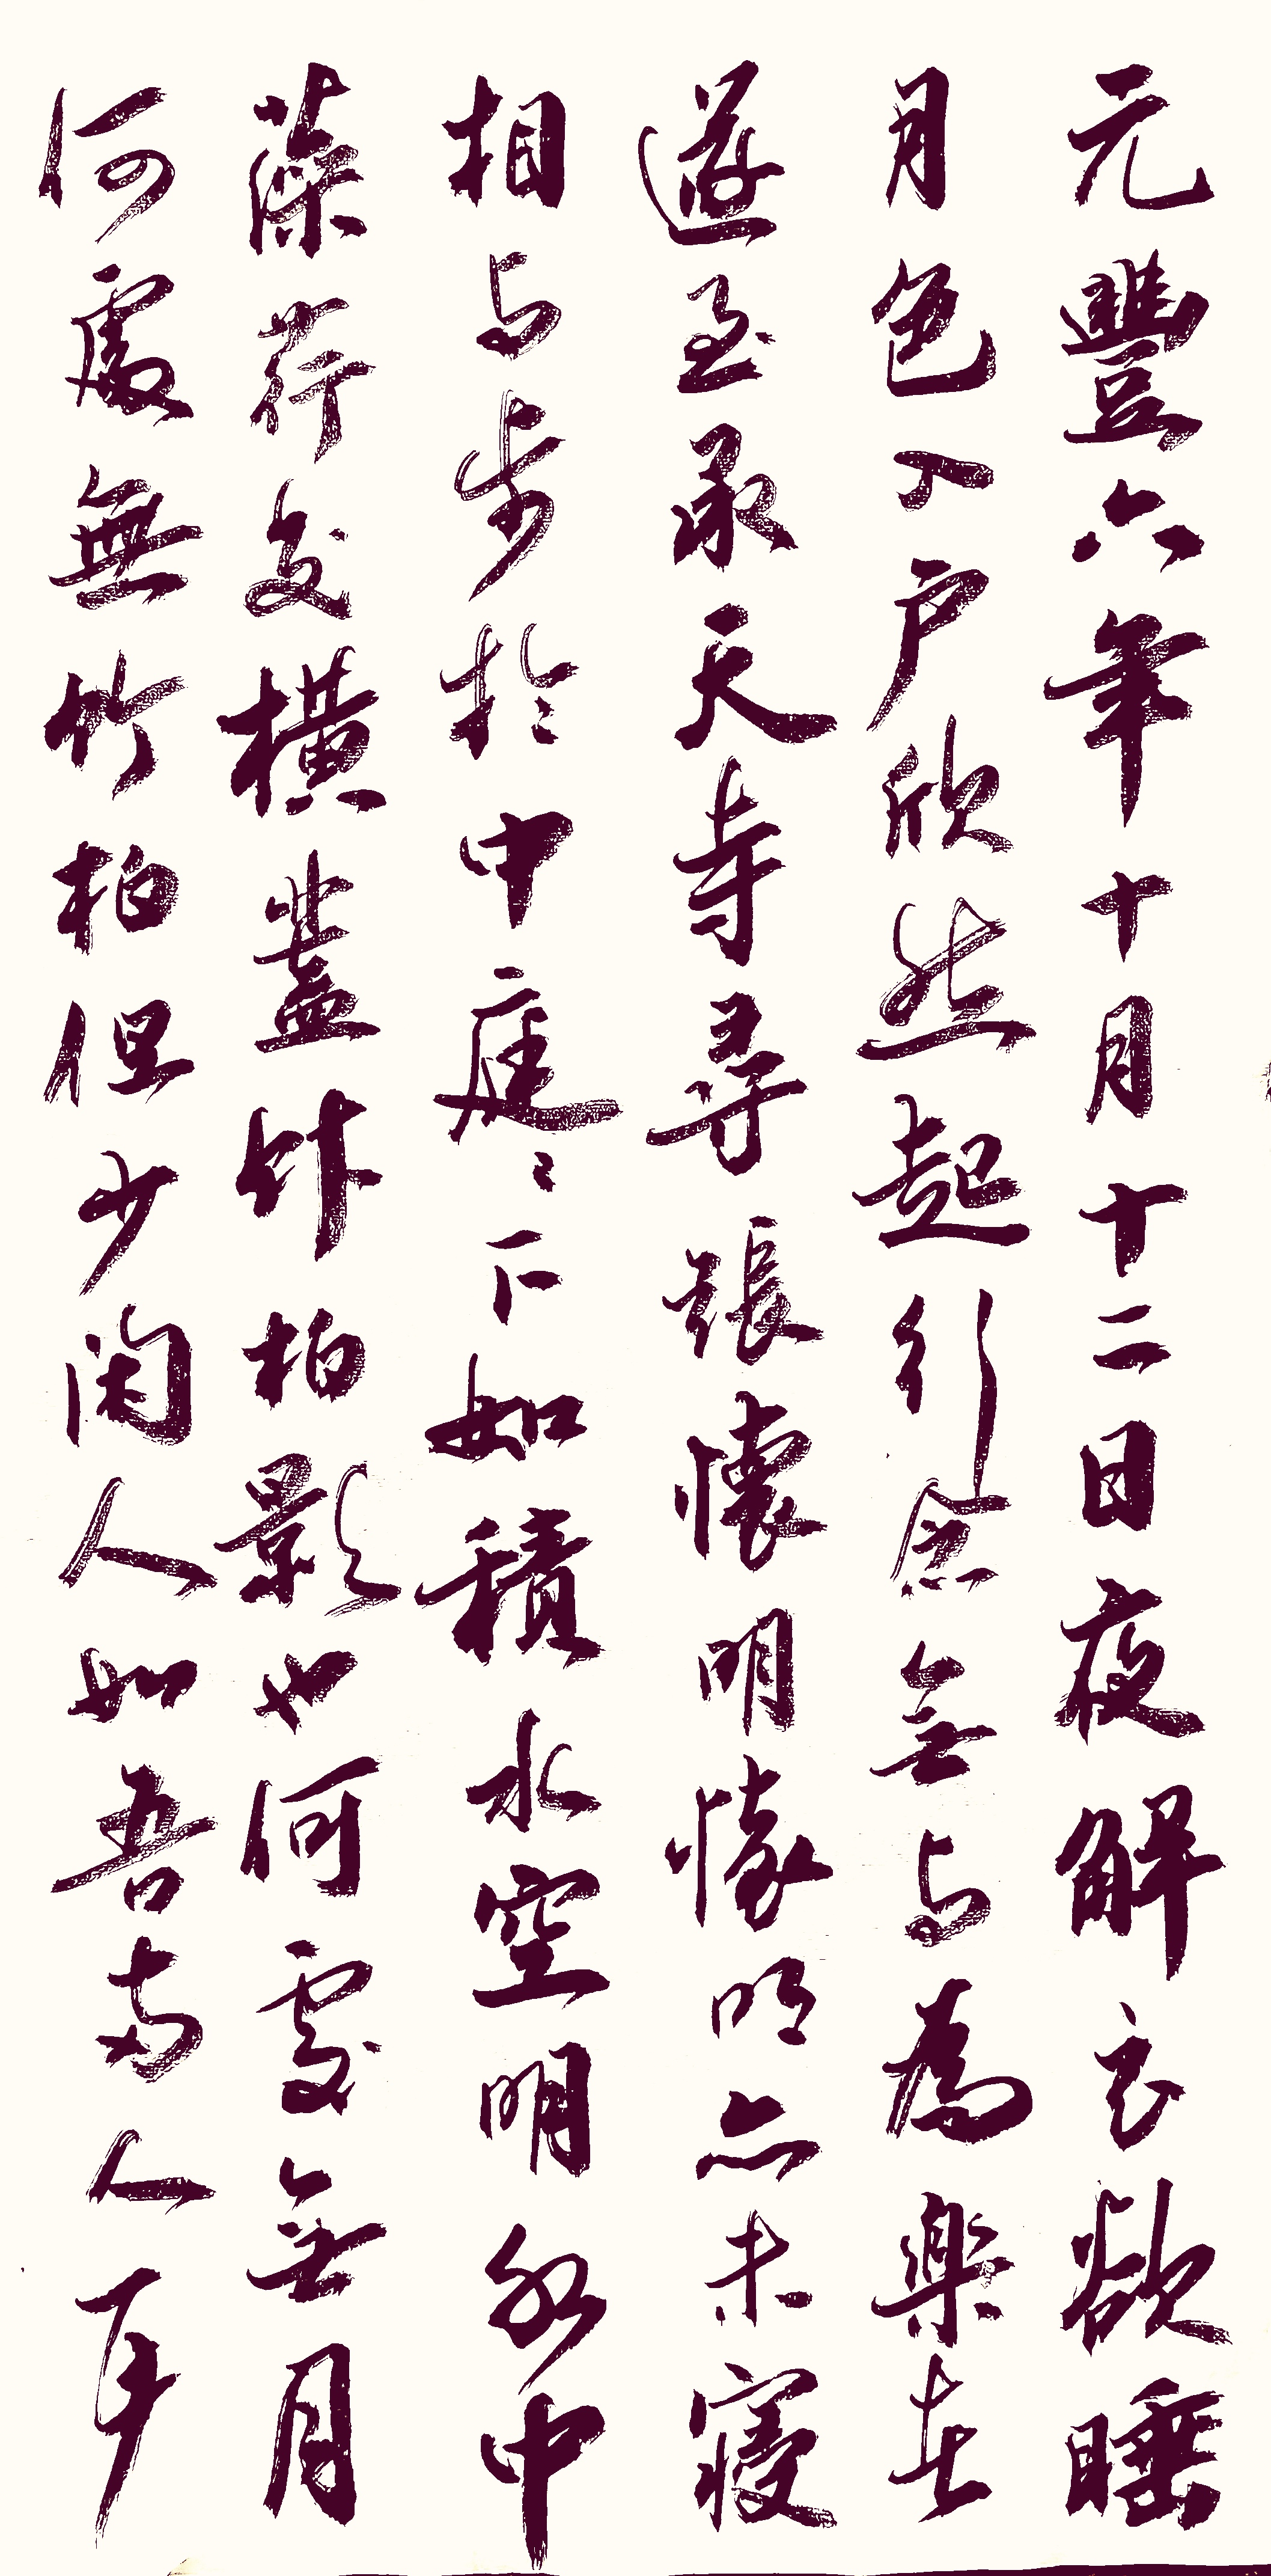 元豐六年十月十二日夜解衣欲睡
月色入户欣然起行念無与為樂者
遂至承天寺尋張懷明懷明亦未寢
相与步於中庭〻下如積水空明水中
藻荇交橫蓋竹柏影也何處無月
何處無竹柏但少閑人如吾兩人耳